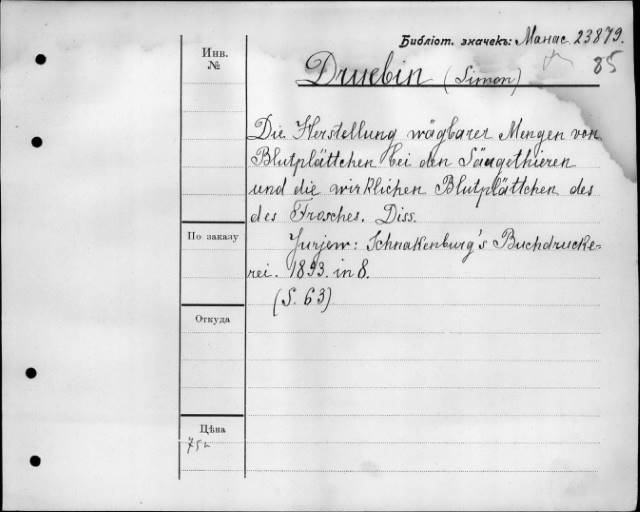 Библіот. значекъ: Манас. 23879.
85
Инв.
№
Druebin (Simon)
Die Herstellung wägbarer Mengen von
Blutplättchen bei den Säugethieren
und die wirklichen Blutplättchen des
des Frosches. Diss.
По заказу
Jurjew: Schnakenburg's Buchdrucke-
rei. 1893. in 8.
(S. 63)
Откуда
Цѣна